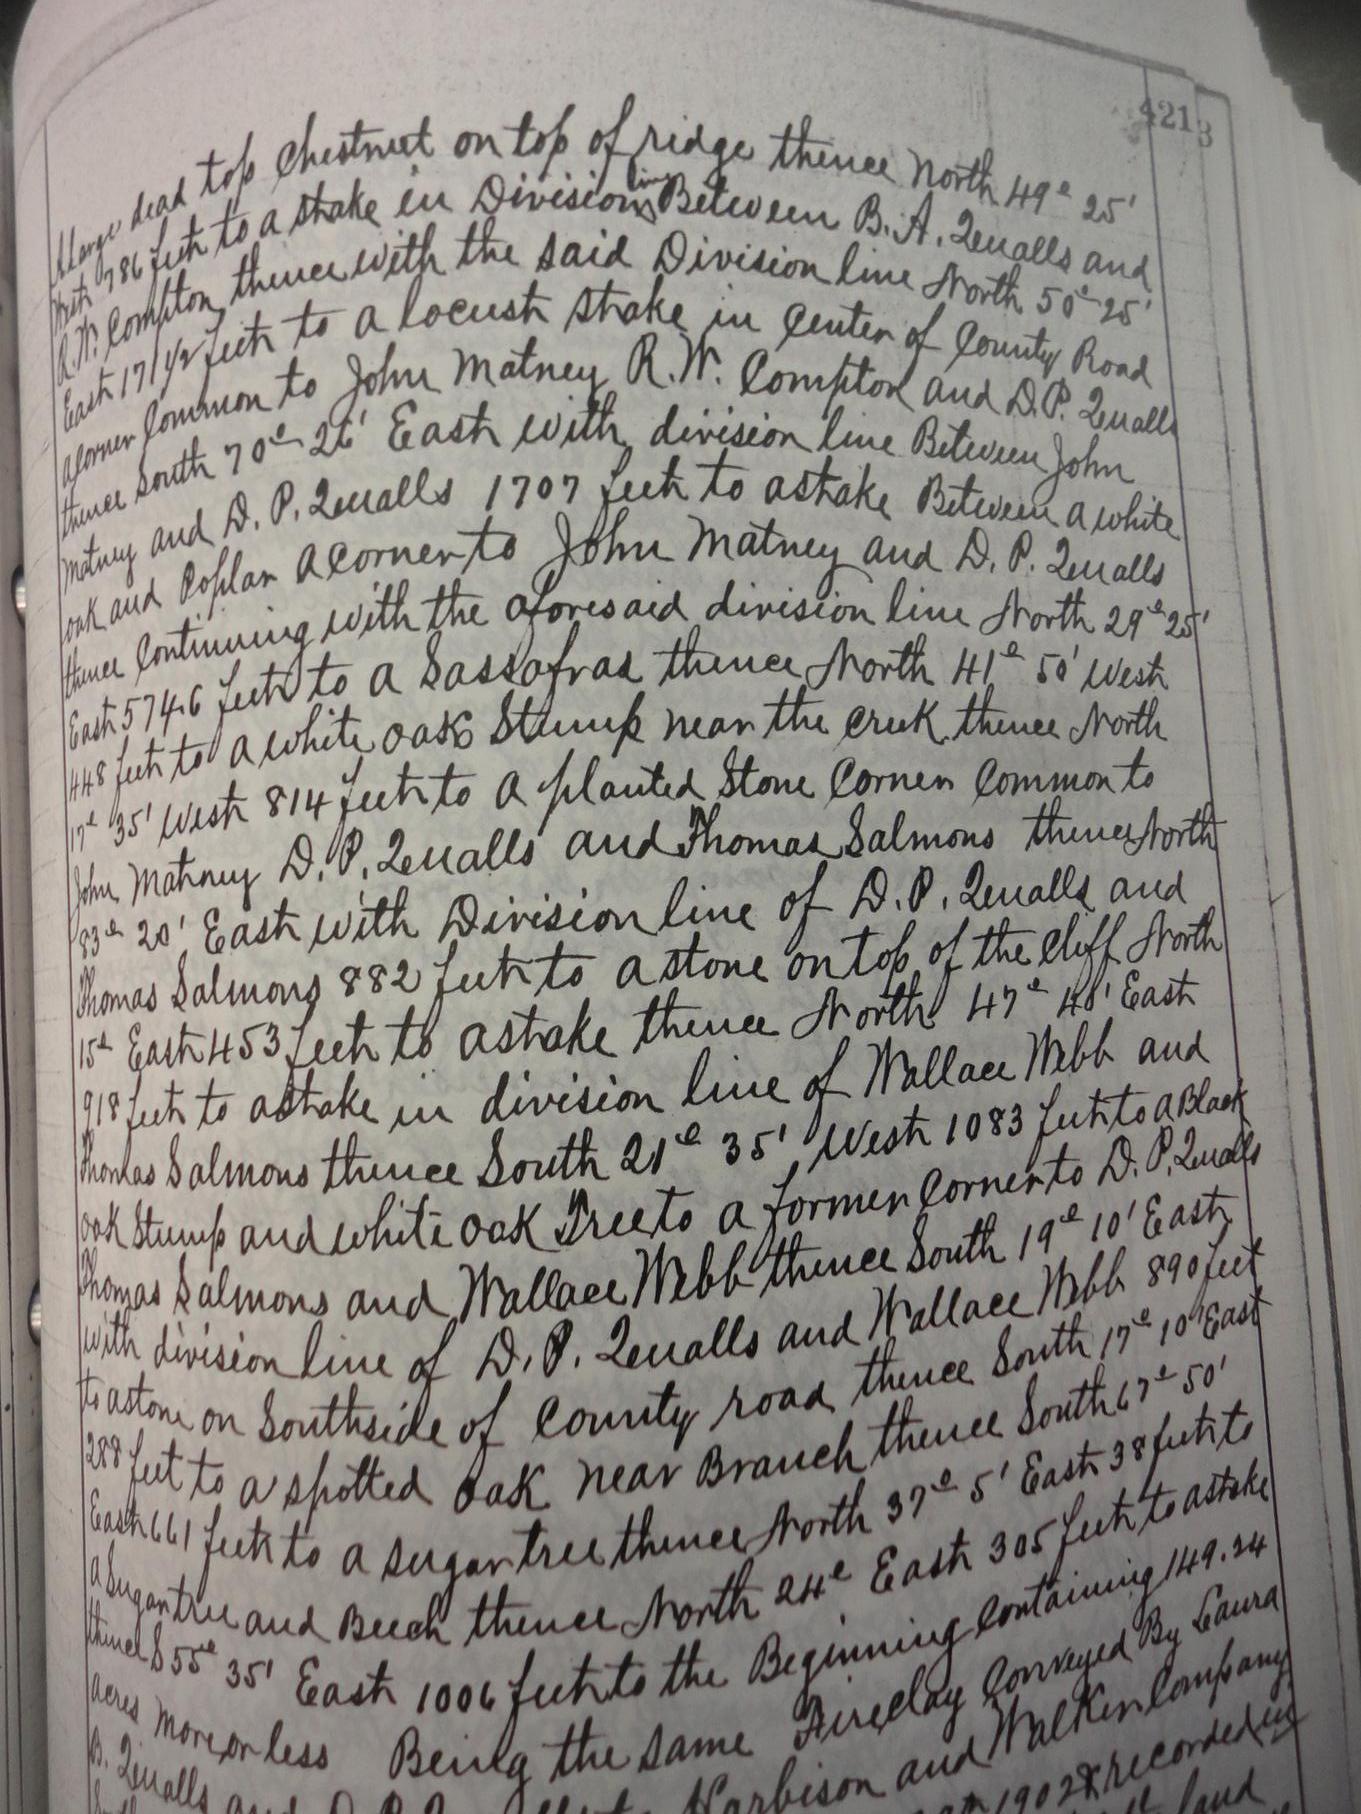 421
A large dead top Chestnut on top of ridge thence North 49° 25'
West 786 feet to a stake in Division line Between B. A. Qualls and
R. W. Compton thence with the said Division line North 50° 25'
East 171 1/2 feet to a locust stake in Center of County Road
a corner Common to John Matney R. W. Compton and D. P. Qualls
thence South 70° 26' East with division line Between John
Matney and D. P. Qualls 1707 feet to a stake Between a white
oak and Poplar A corner to John Matney and D. P. Qualls
thence Continuing with the aforesaid division line North 29° 25'
East 574.6 feet to a Sassafras thence North 41° 50' West
448 feet to a white oak Stump near the creek thence North
17° 35' West 814 feet to a planted Stone Corner Common to
John Matney D. P. Qualls and Thomas Salmons thence North
83° 20' East with Division line of D. P. Qualls and
Thomas Salmons 882 feet to a stone on top of the cliff North
15° East 453 feet to a stake thence North 47° East
918 feet to a stake in division line of Wallace Webb and
Thomas Salmons thence South 21° 35' West 1083 feet to a Black
oak Stump and white oak Tree to a former Corner to D. P. Qualls
Thomas Salmons and Wallace Webb thence South 19° 10' East
with division line of D. P. Qualls and Wallace Webb 890 feet
to a stone on Southside of County road thence South 17° 10' East
288 feet to a spotted oak near Branch thence South 67° 50'
East 661 feet to a sugar tree thence North 37° 5' East 38 feet to
a Sugar tree and Beech thence North 24° East 305 feet to a stake
thence S 55° 35' East 1006 feet to the Beginning Containing 149.24
acres more or less Being the same Fireclay Conveyed By Laura
B. Qualls and Harbison and Walker Company
1902 recorded in
land